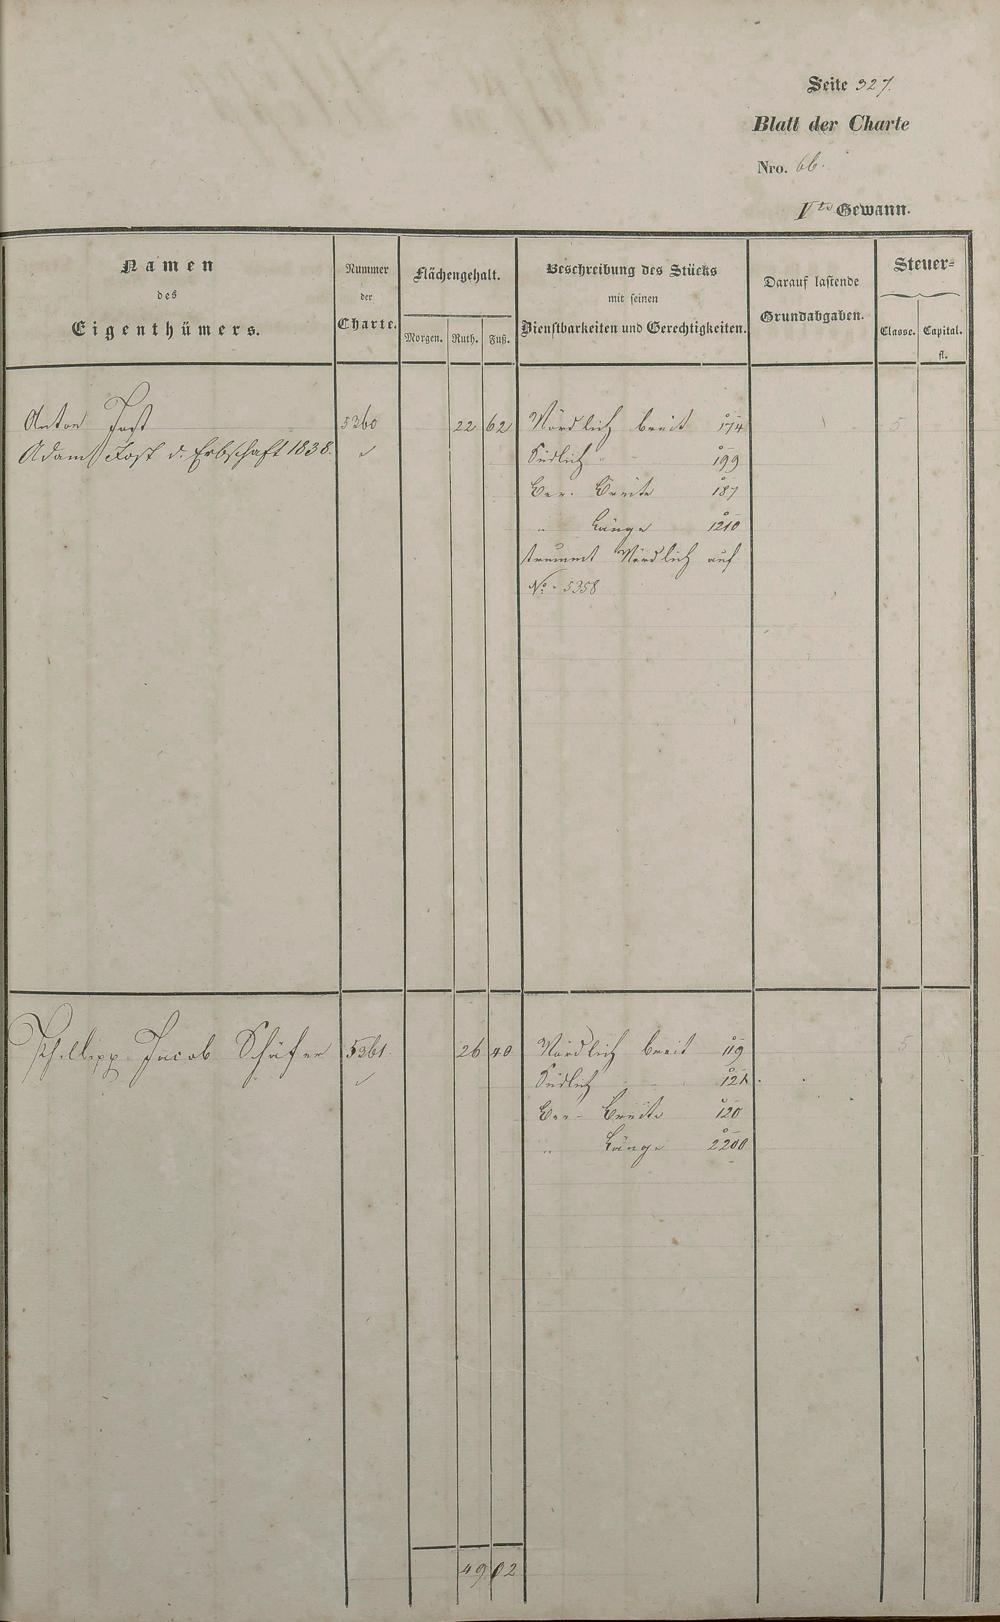 Seite 327.
Blatt der Charte
Nro. 66.
Vte Gewann.
Namen
des
Eigenthümers.
Nummer
der
Charte.
Flächengehalt.
Morgen. Ruth. Fuß.
Beschreibung des Stücks
mit seinen
Dienstbarkeiten und Gerechtigkeiten.
Darauf lastende
Grundabgaben.
Steuer-
Classe. Capital.
fl.
Anton Jost 5360 22 62 Nördlich breit 174 5
Adam Jost d. Erbschaft 1838. Südlich 199
Ber. Breite 187
" Länge 1210
Nördlich auf
No. 5358
Phillipp Jacob Schäfer 5361 26 40 Nördlich breit 119 5
Südlich 121
Ber. Breite 120
" Länge 2200
49 02